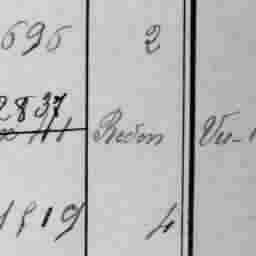 696 2
2837
Redon Vu-
1819 4